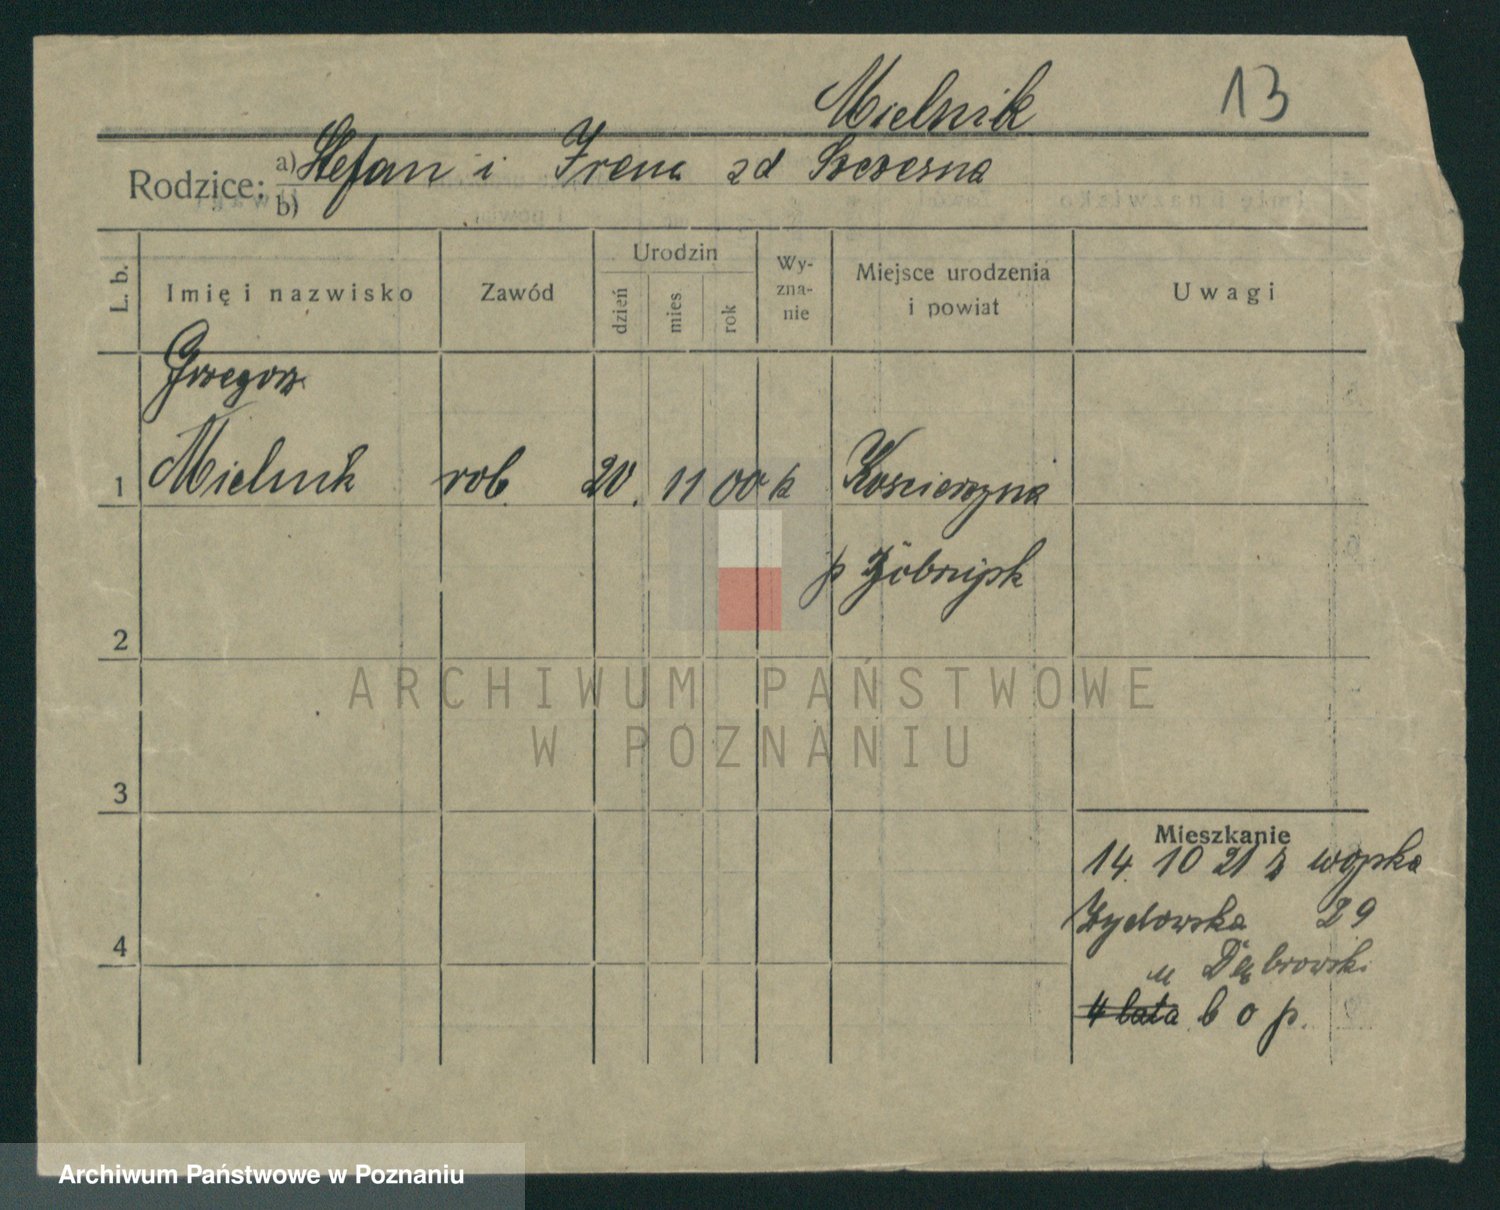 Mielnik 13
Rodzice: a) Stefan i Irena zd Szczesna
b)
L. b. Imię i nazwisko Zawód Urodzin dzień mies rok Wyznanie Miejsce urodzenia i powiat Uwagi
Grzegorz
1 Mielnik rob. 20. 11 00 k Koscierzyna
p
2
ARCHIWUM PAŃSTWOWE
W POZNANIU
3
Mieszkanie
14 10 21 z wojska
4 Zydowska 29
u Dąbrowski
4 lata b o p.
Archiwum Państwowe w Poznaniu